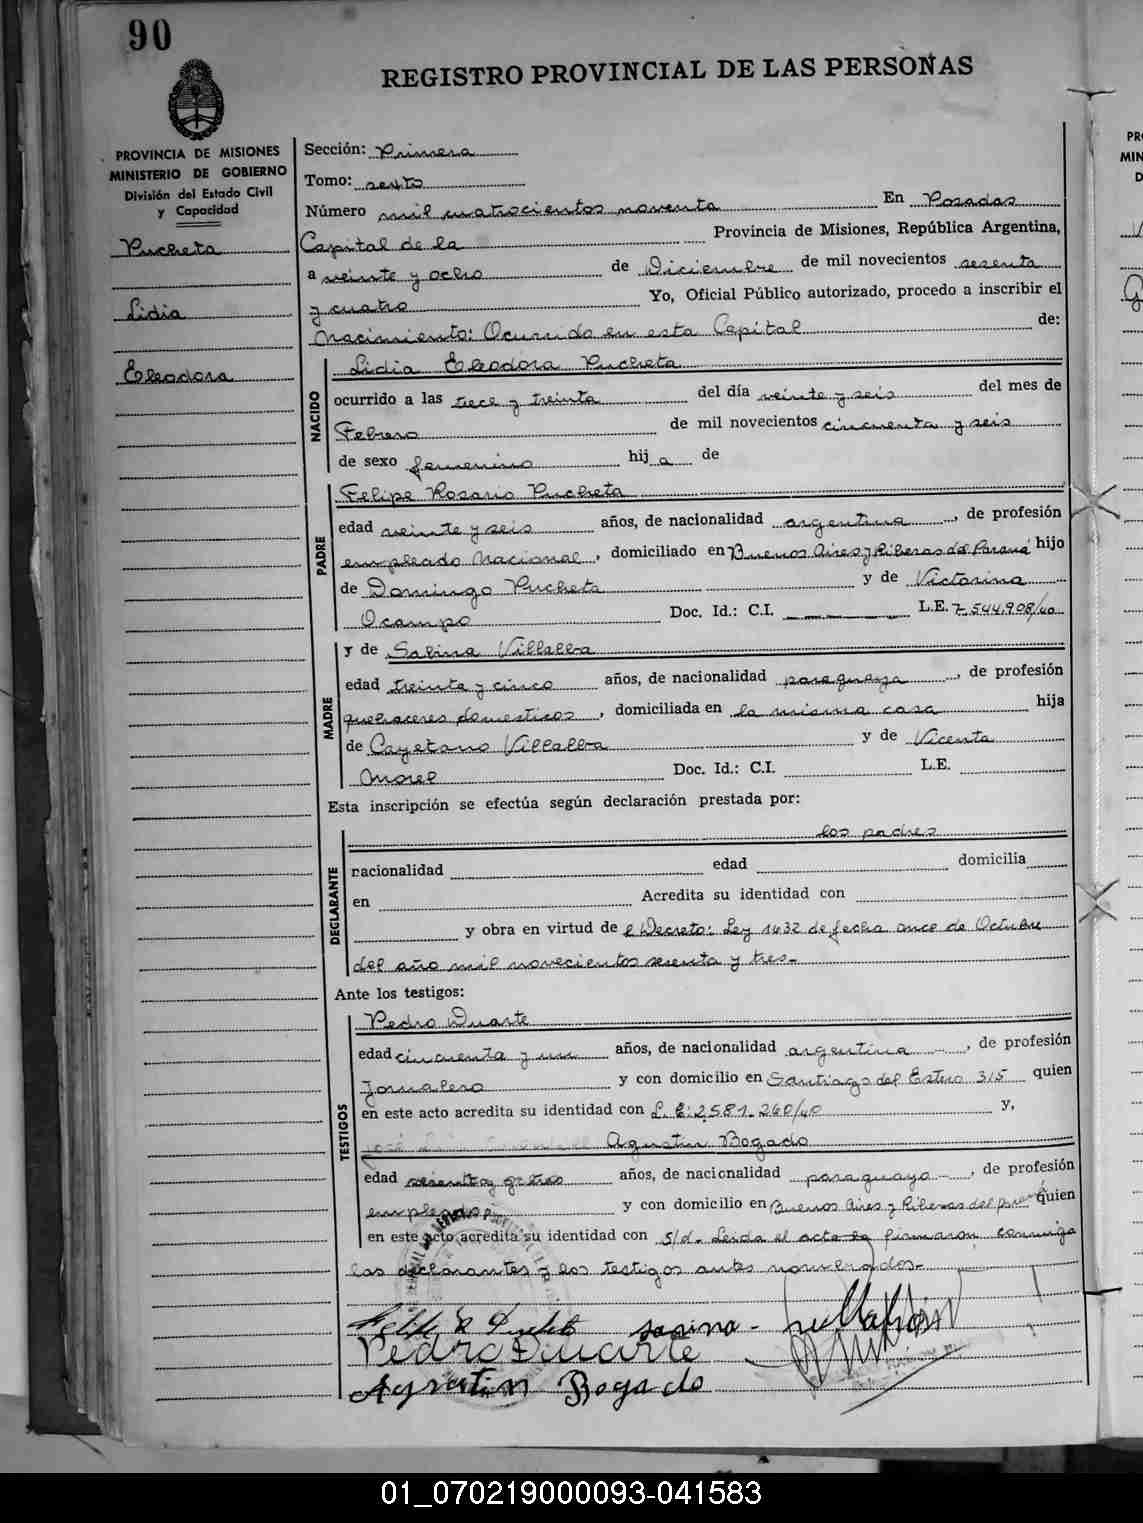 90
REGISTRO PROVINCIAL DE LAS PERSONAS
PROVINCIA DE MISIONES
MINISTERIO DE GOBIERNO
División del Estado Civil
y Capacidad
Pucheta
Lidia
Eleodora
Sección: Primera
Tomo: sexto
Número mil cuatrocientos noventa En Posadas
Capital de la Provincia de Misiones, República Argentina,
a veinte y ocho de Diciembre de mil novecientos sesenta
y cuatro Yo, Oficial Público autorizado, procedo a inscribir el
Nacimiento: Ocurrido en esta Capital de:
NACIDO
Lidia Eleodora Pucheta
ocurrido a las trece y treinta del día veinte y seis del mes de
Febrero de mil novecientos cincuenta y seis
de sexo femenino hij a de
PADRE
Felipe Rosario Pucheta
edad veinte y seis años, de nacionalidad argentina, de profesión
empleado Nacional, domiciliado en Buenos Aires y Riberas del Paraná hijo
de Domingo Pucheta y de Victorina
Ocampo Doc. Id.: C.I. L.E. 7.544.908/40
MADRE
y de Sabina Villalba
edad treinta y cinco años, de nacionalidad paraguaya, de profesión
quehaceres domesticos, domiciliada en la misma casa hija
de Cayetano Villalba y de Vicenta
Morel Doc. Id.: C.I. L.E.
Esta inscripción se efectúa según declaración prestada por:
DECLARANTE
los padres
nacionalidad edad domicilia
en Acredita su identidad con
y obra en virtud de l Decreto: Ley 1432 de fecha once de Octubre
del año mil novecientos sesenta y tres.-
Ante los testigos:
TESTIGOS
Pedro Duarte
edad cincuenta y un años, de nacionalidad argentina, de profesión
Jornalero y con domicilio en Santiago del Estero 315 quien
en este acto acredita su identidad con L.E: 2.581.260/40 y,
Agustin Bogado
edad años, de nacionalidad paraguaya, de profesión
empleado y con domicilio en Buenos Aires y Riberas del quien
en este acto acredita su identidad con s/d.- Leida el acta la firmaron conmigo
los declarantes y los testigos antes nombrados.-
Sabina - Villalba
Pedro Duarte
Agustin Bogado
01_070219000093-041583